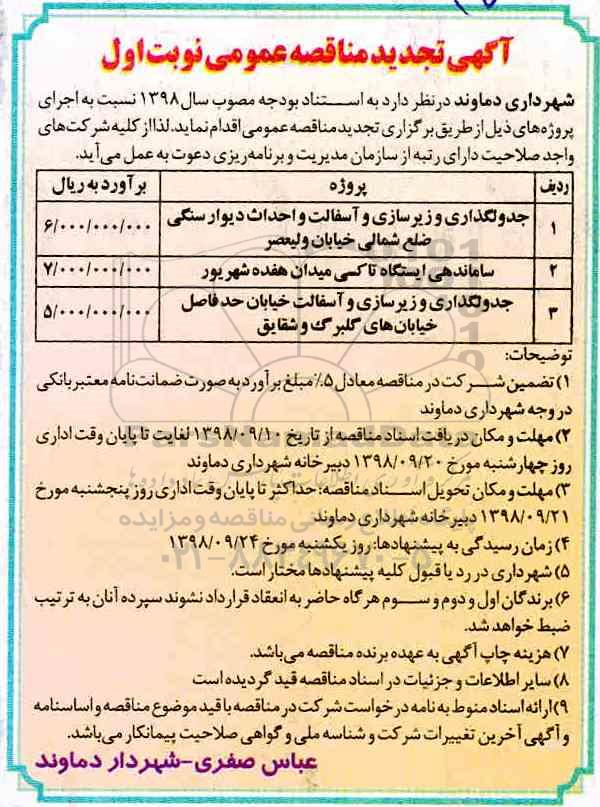 آگهی تجدید مناقصه عمومی نوبت اول
شهرداری دماوند در نظر دارد به استناد بودجه مصوب سال ۱۳۹۸ نسبت به اجرای
پروژه‌های ذیل از طریق برگزاری تجدید مناقصه عمومی اقدام نماید. لذا از کلیه شرکت‌های
واجد صلاحیت دارای رتبه از سازمان مدیریت و برنامه‌ریزی دعوت به عمل می‌آید.
ردیف پروژه برآورد به ریال
۱ جدولگذاری و زیرسازی و آسفالت و احداث دیوار سنگی ضلع شمالی خیابان ولیعصر ۶/۰۰۰/۰۰۰/۰۰۰
۲ ساماندهی ایستگاه تاکسی میدان هفده شهریور ۷/۰۰۰/۰۰۰/۰۰۰
۳ جدولگذاری و زیرسازی و آسفالت خیابان حد فاصل خیابان‌های گلبرگ و شقایق ۵/۰۰۰/۰۰۰/۰۰۰
توضیحات:
۱) تضمین شرکت در مناقصه معادل ۵٪ مبلغ برآورد به صورت ضمانت‌نامه معتبر بانکی
در وجه شهرداری دماوند
۲) مهلت و مکان دریافت اسناد مناقصه از تاریخ ۱۳۹۸/۰۹/۱۰ لغایت تا پایان وقت اداری
روز چهارشنبه مورخ ۱۳۹۸/۰۹/۲۰ دبیرخانه شهرداری دماوند
۳) مهلت و مکان تحویل اسناد مناقصه: حداکثر تا پایان وقت اداری روز پنجشنبه مورخ
۱۳۹۸/۰۹/۲۱ دبیرخانه شهرداری دماوند
۴) زمان رسیدگی به پیشنهادها: روز یکشنبه مورخ ۱۳۹۸/۰۹/۲۴
۵) شهرداری در رد یا قبول کلیه پیشنهادها مختار است.
۶) برندگان اول و دوم و سوم هرگاه حاضر به انعقاد قرارداد نشوند سپرده آنان به ترتیب
ضبط خواهد شد.
۷) هزینه چاپ آگهی به عهده برنده مناقصه می‌باشد.
۸) سایر اطلاعات و جزئیات در اسناد مناقصه قید گردیده است
۹) ارائه اسناد منوط به نامه درخواست شرکت در مناقصه با قید موضوع مناقصه و اساسنامه
و آگهی آخرین تغییرات شرکت و شناسه ملی و گواهی صلاحیت پیمانکار می‌باشد.
عباس صفری-شهردار دماوند
ParsNamadData
پایگاه اطلاع رسانی مناقصه و مزایده
۰۲۱-۸۸۳۴۹۶۷۰-۵